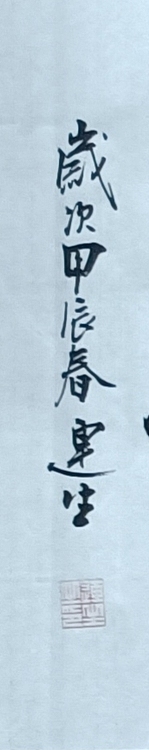 歲次甲辰春運生